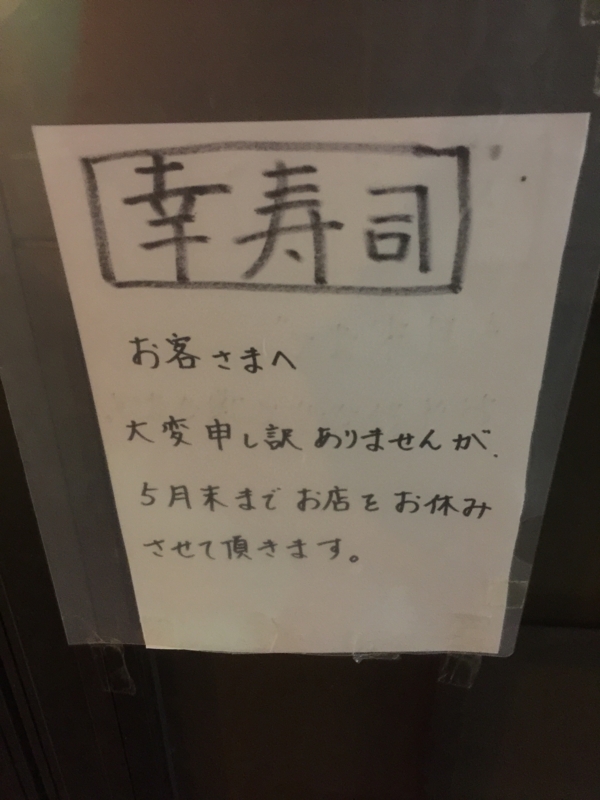 幸寿司
お客さまへ
大変申し訳ありませんが、
5月末までお店をお休み
させて頂きます。